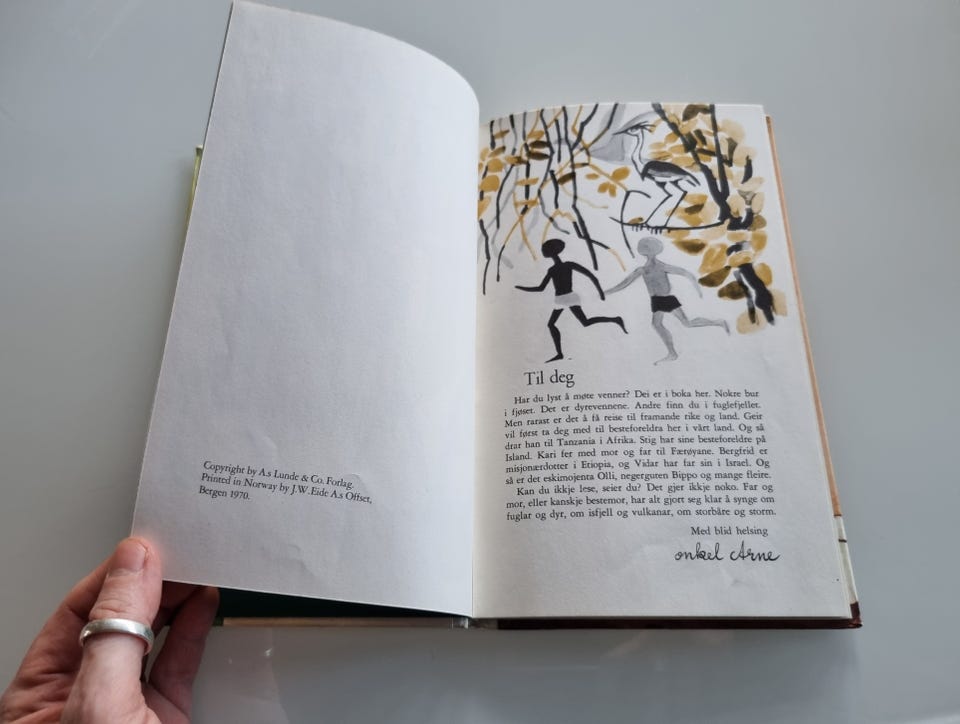 Copyright by A.s Lunde & Co. Forlag.
Printed in Norway by J.W. Eide A.s Offset,
Bergen 1970.
Til deg
Har du lyst å møte venner? Dei er i boka her. Nokre bur
i fjøset. Det er dyrevennene. Andre finn du i fuglefjellet.
Men rarast er det å få reise til framande rike og land. Geir
vil først ta deg med til besteforeldra her i vårt land. Og så
drar han til Tanzania i Afrika. Stig har sine besteforeldre på
Island. Kari fer med mor og far til Færøyane. Bergfrid er
misjonærdotter i Etiopia, og Vidar har far sin i Israel. Og
så er det eskimojenta Olli, negerguten Bippo og mange fleire.
Kan du ikkje lese, seier du? Det gjer ikkje noko. Far og
mor, eller kanskje bestemor, har alt gjort seg klar å synge om
fuglar og dyr, om isfjell og vulkanar, om storbåre og storm.
Med blid helsing
onkel Arne